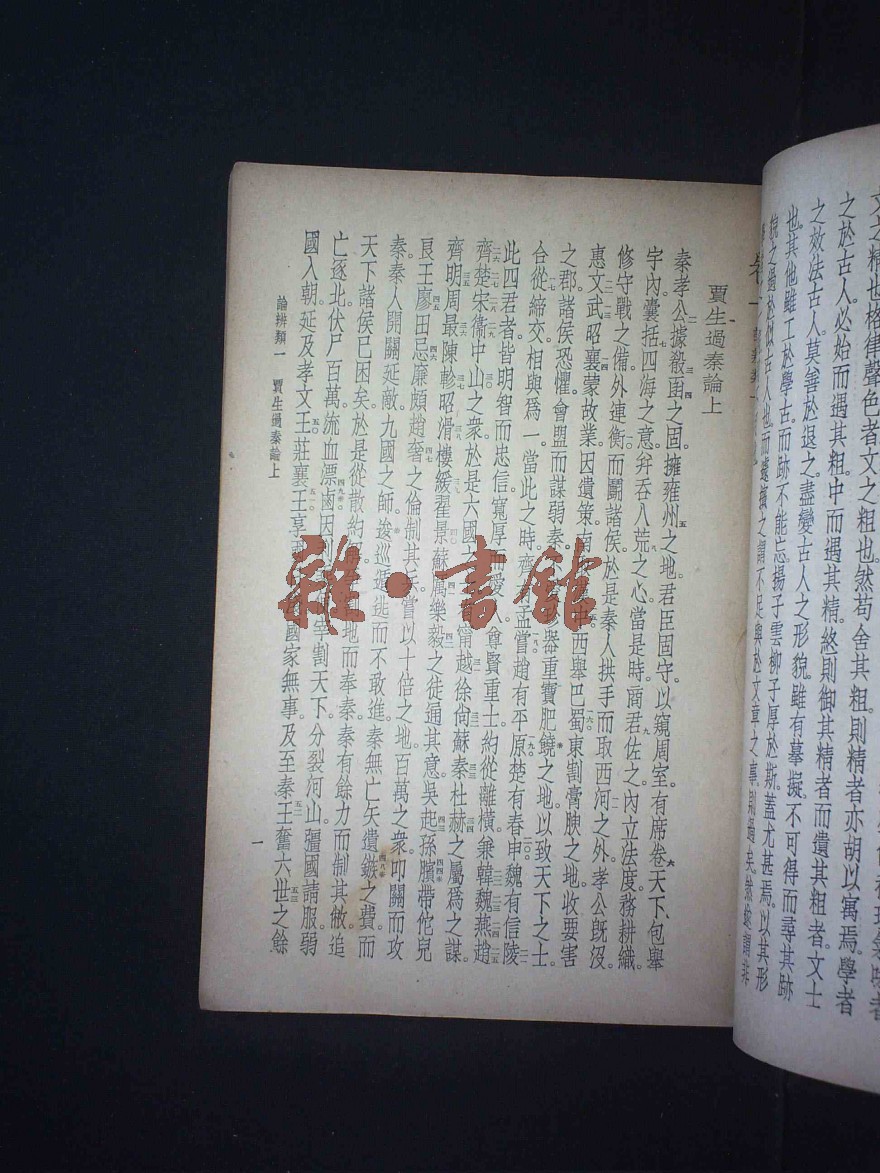 文之精也。格律聲色者。文之粗也。然苟舍其粗。則精者亦胡以寓焉。學者
之於古人。必始而遇其粗。中而遇其精。終則御其精者而遺其粗者。文士
之效法古人。莫善於退之。盡變古人之形貌。雖有摹擬。不可得而尋其跡
也。其他雖工於學古。而跡不能忘。揚子雲柳子厚於斯。蓋尤甚焉。以其形
貌之過於似古人也。而遽擯之。謂不足與於文章之事。則過矣。然遂謂非
賈生過秦論上
秦孝公據殽函之固。擁雍州之地。君臣固守。以窺周室。有席卷天下。包舉
宇內。囊括四海之意。幷吞八荒之心。當是時。商君佐之。內立法度。務耕織。
修守戰之備。外連衡而鬬諸侯。於是秦人拱手而取西河之外。孝公旣沒。
惠文武昭襄蒙故業。因遺策。南中。西舉巴蜀。東割膏腴之地。收要害
之郡。諸侯恐懼。會盟而謀弱秦。器重寶肥饒之地。以致天下之士。
合從締交。相與爲一。當此之時。齊孟嘗。趙有平原。楚有春申。魏有信陵。
此四君者。皆明智而忠信。寬厚而愛人。尊賢重士。約從離橫。兼韓魏燕趙
齊楚宋衞中山之衆。於是六國之甯越徐尚蘇秦杜赫之屬爲之謀。
齊明周最陳軫昭滑樓緩翟景蘇厲樂毅之徒通其意。吳起孫臏帶佗兒
良王廖田忌廉頗趙奢之倫制其兵。嘗以十倍之地。百萬之衆。叩關而攻
秦。秦人開關延敵。九國之師。逡巡遁逃而不敢進。秦無亡矢遺鏃之費。而
天下諸侯已困矣。於是從散約地而奉秦。秦有餘力而制其敝。追
亡逐北。伏尸百萬。流血漂鹵。因利宰割天下。分裂河山。彊國請服。弱
國入朝。延及孝文王莊襄王享國家無事。及至秦王。奮六世之餘
論辨類一 賈生過秦論上
一
雜·書館